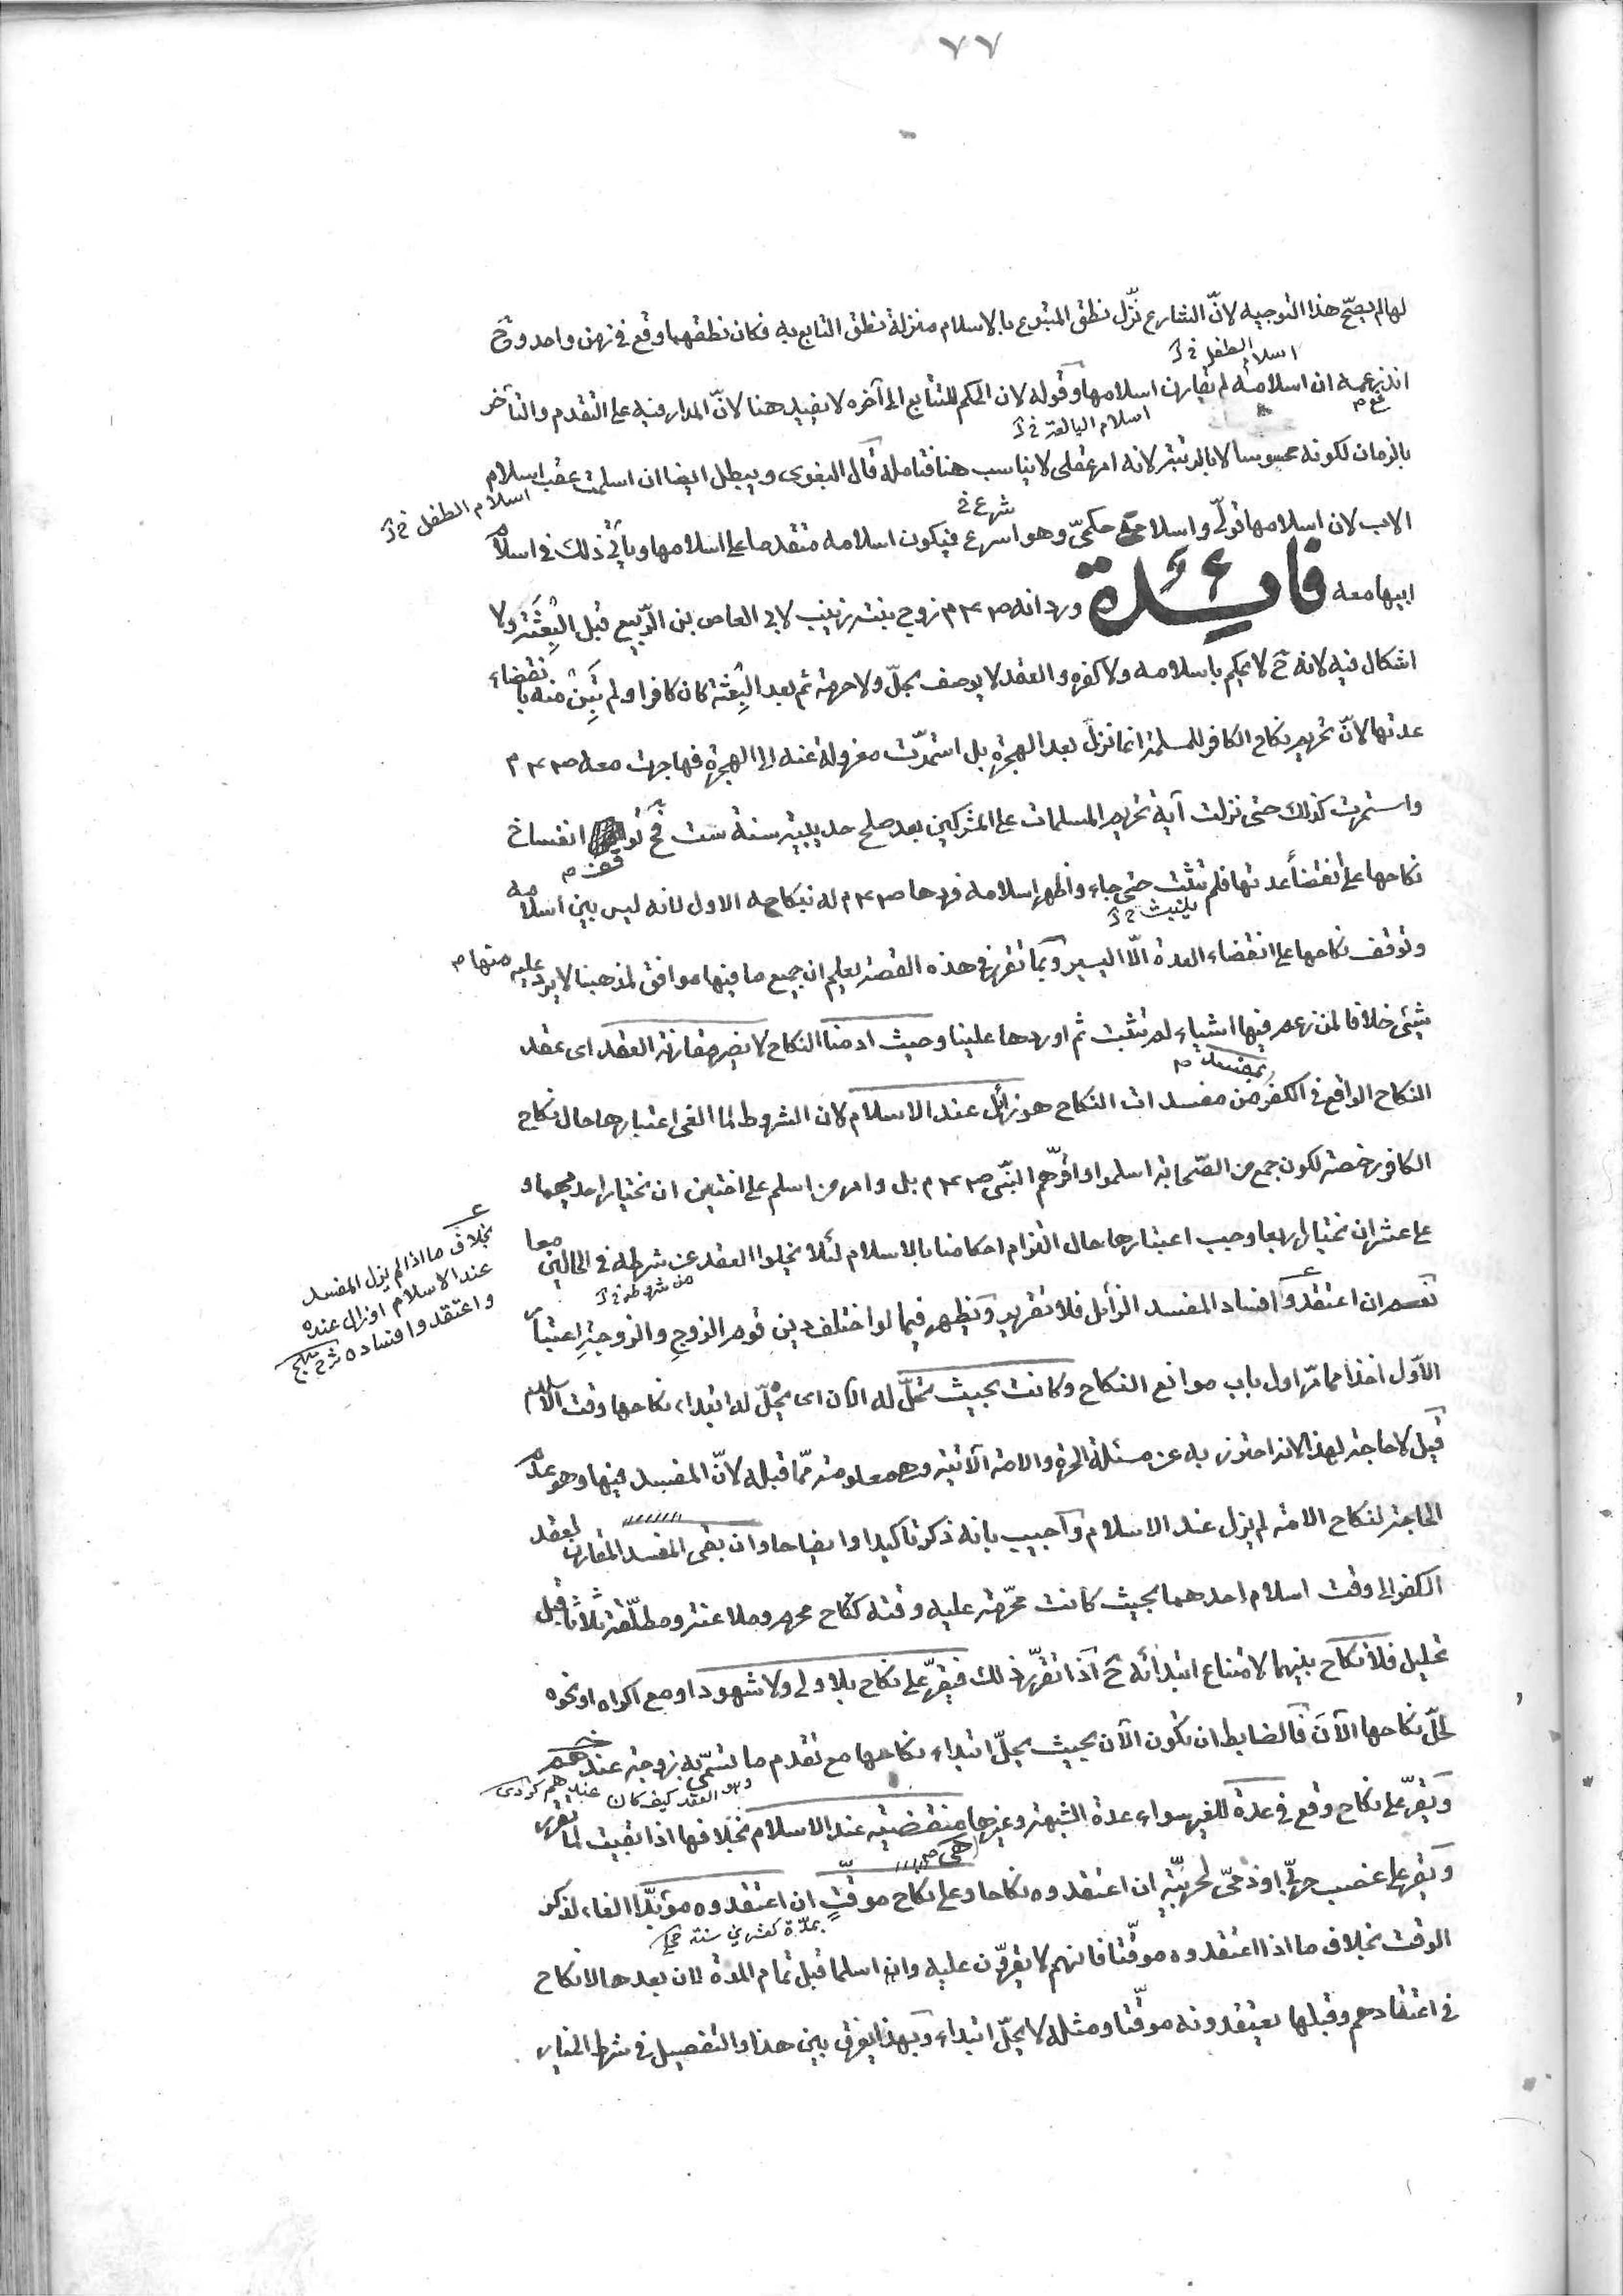 ٧٧
لها لم يصحّ هذا التوجيه لانّ الشارع نزّل نطق المتبوع بالاسلام منزلة نطق التابع به فكان نطقهما وقع في زمن واحد وح
اسلام الطفل
اندفع زعمه ان اسلامه لم يقارن اسلامها وقوله لان الحكم للتابع الى آخره لا يفيد هنا لانّ المدار فيه على التقدم والتأخر
اسلام البالغة
بالزمان لكونه محسوسا لا بالرتبة لانه امر عقلي لا يناسب هنا فتأمله قال البغوى ويبطل ايضا ان اسلمت عقب اسلام
اسلام الطفل
شرعي
الاب لان اسلامها قولىّ واسلامه حكمىّ وهو اسرع فيكون اسلامه متقدما على اسلامها ويأتي ذلك في اسلام
ابيها معه فائدة ورد انه صم زوج بنته زينب لابي العاص بن الربيع قبل البعثة ولا
اشكال فيه لانه ح لا يحكم باسلامه ولا كفره والعقد لا يوصف بحلّ ولا حرمة ثم بعد البعثة كان كافرا ولم تبن منه بانقضاء
عدتها لانّ تحريم نكاح الكافر للمسلمة انما نزل بعد الهجرة بل استمرّت معزولة عنه الى الهجرة فهاجرت معه صم
واستمرت كذلك حتى نزلت آية تحريم المسلمات على المشركين بعد صلح حديبية سنة ست فح توقف انفساخ
نكاحها على انقضاء عدتها فلم تلبث حتى جاء واظهر اسلامه فردها صم له بنكاحه الاول لانه ليس بين اسلامه
يلبث
وتوقف نكاحها على انقضاء العدة الّا اليسير وبما تقرر في هذه القصة يعلم ان جميع ما فيها موافق لمذهبنا لا يرد عليه منها
شيئ خلافا لمن زعم فيها اشياء لم تثبت ثم اوردها علينا وحيث ادمنا النكاح لا يضر مقارنة العقد اى عقد
لمفسد
النكاح الواقع في الكفر من مفسدات النكاح هو زائل عند الاسلام لان الشروط لما الغى اعتبارها حال نكاح
الكافر رخصة لكون جمع من الصّحابة اسلموا واقرّهم النبّى صم بل وامر من اسلم على اختين ان يختار احديهما و
على عشر ان يختار اربعا وجب اعتبارها حال التزام احكامنا بالاسلام لئلا يخلوا العقد عن شرطه في الحالين معا
من شروطه
نعم ان اعتقدوا افساد المفسد الزائل فلا تقرير ويظهر فيما لو اختلف دين قوم الزوج والزوجة اعتبار
بخلاف ما اذا لم يزل المفسد
عند الاسلام او زال عنده
واعتقدوا فساده شرح منهج
الاوّل اخذا مما مرّ اول باب موانع النكاح وكانت بحيث تحلّ له الآن اى يحلّ له ابتداء نكاحها وقت الاسلام
قيل لا حاجة لهذا لانه احترز به عن مسئلة الحرة والامة الآتية وهي معلومة ممّا قبله لانّ المفسد فيها وهو عدم
الحاجة لنكاح الامة لم يزل عند الاسلام وأجيب بانه ذكر تأكيدا وايضاحا وان بقى المفسد المقارن لعقد
الكفر الى وقت اسلام احدهما بحيث كانت محرّمة عليه وقته كنكاح محرم وملاعنة ومطلّقة ثلاثا قبل
تحليل فلا نكاح بينهما لامتناع ابتدائه ح اذا تقرّر ذلك فيقرّ على نكاح بلا ولى ولا شهود او مع اكراه او نحوه
لحلّ نكاحها الآن فالضابط ان تكون الآن بحيث يحلّ ابتداء نكاحها مع تقدم ما تسمّى به زوجة عندهم
وهو العقد كيف كان عندهم كردى
ويقرّ على نكاح وقع في عدة للغير سواء عدة الشبهة وغيرها هي منقضية عند الاسلام بخلافها اذا بقيت لما تقرر
ويقر على غصب حربيّ او ذمّى لحربيّة ان اعتقدوه نكاحا وعلى نكاح موقّت ان اعتقدوه مؤبّدا الغاء لذكر
بمدّة كعشرين سنة
الوقت بخلاف ما اذا اعتقدوه موقّتا فانهم لا يقرّون عليه وان اسلما قبل تمام المدة لان بعدها لا نكاح
في اعتقادهم وقبلها يعتقدونه موقّتا ومثله لا يحلّ ابتداء وبهذا يفرق بين هذا والتفصيل في شرط الخيار